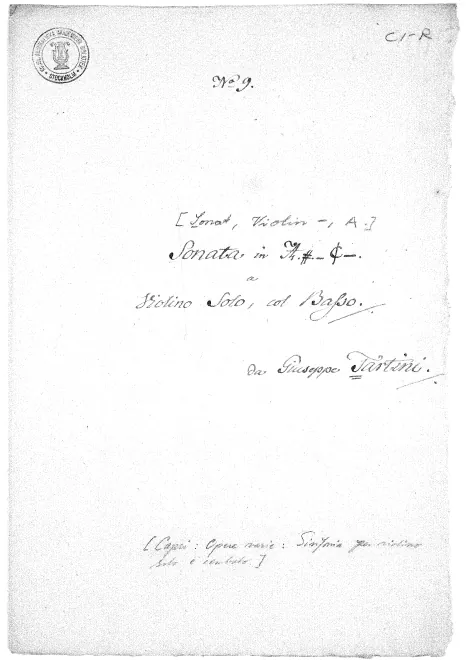 C1-R
No 9.
[Sonat, Violin -, A.]
Sonata in A.#. - ₵ -.
a
Violino Solo, col Basso.
da Giuseppe Tartini.
[Capri: Opere varie: Sinfonia per violino
solo e cembalo.]